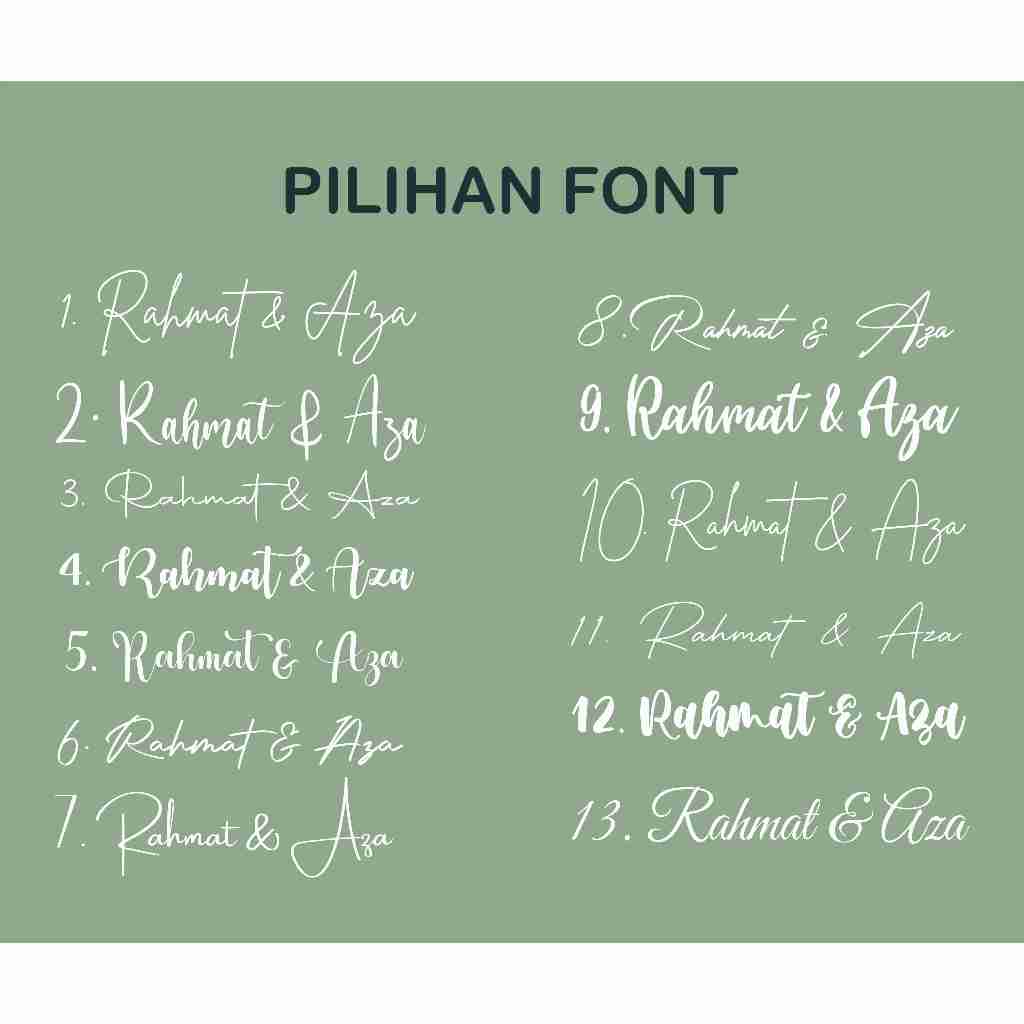 PILIHAN FONT
1. Rahmat & Aza
2. Rahmat & Aza
3. Rahmat & Aza
4. Rahmat & Aza
5. Rahmat & Aza
6. Rahmat & Aza
7. Rahmat & Aza
8. Rahmat & Aza
9. Rahmat & Aza
10. Rahmat & Aza
11. Rahmat & Aza
12. Rahmat & Aza
13. Rahmat & Aza